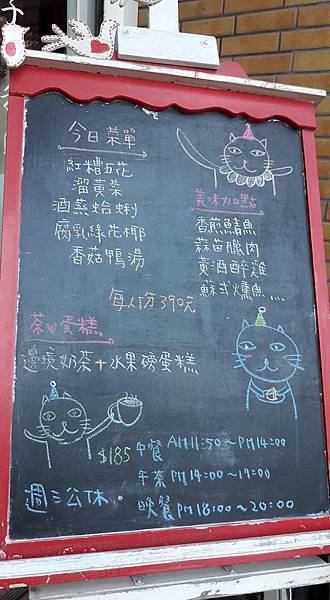 今日菜單
紅糟五花
溜黃菜
酒蒸蛤蜊
腐乳綠花椰
香菇鴨湯
每人份390元
美味加點
香煎鯖魚
蒜苗臘肉
黃酒醉雞
蘇式燻魚...
茶＆蛋糕
邊境奶茶+水果磅蛋糕
$185
中餐 AM11:50～PM14:00
午茶 PM14:00～17:00
晚餐 PM18:00～20:00
週三公休